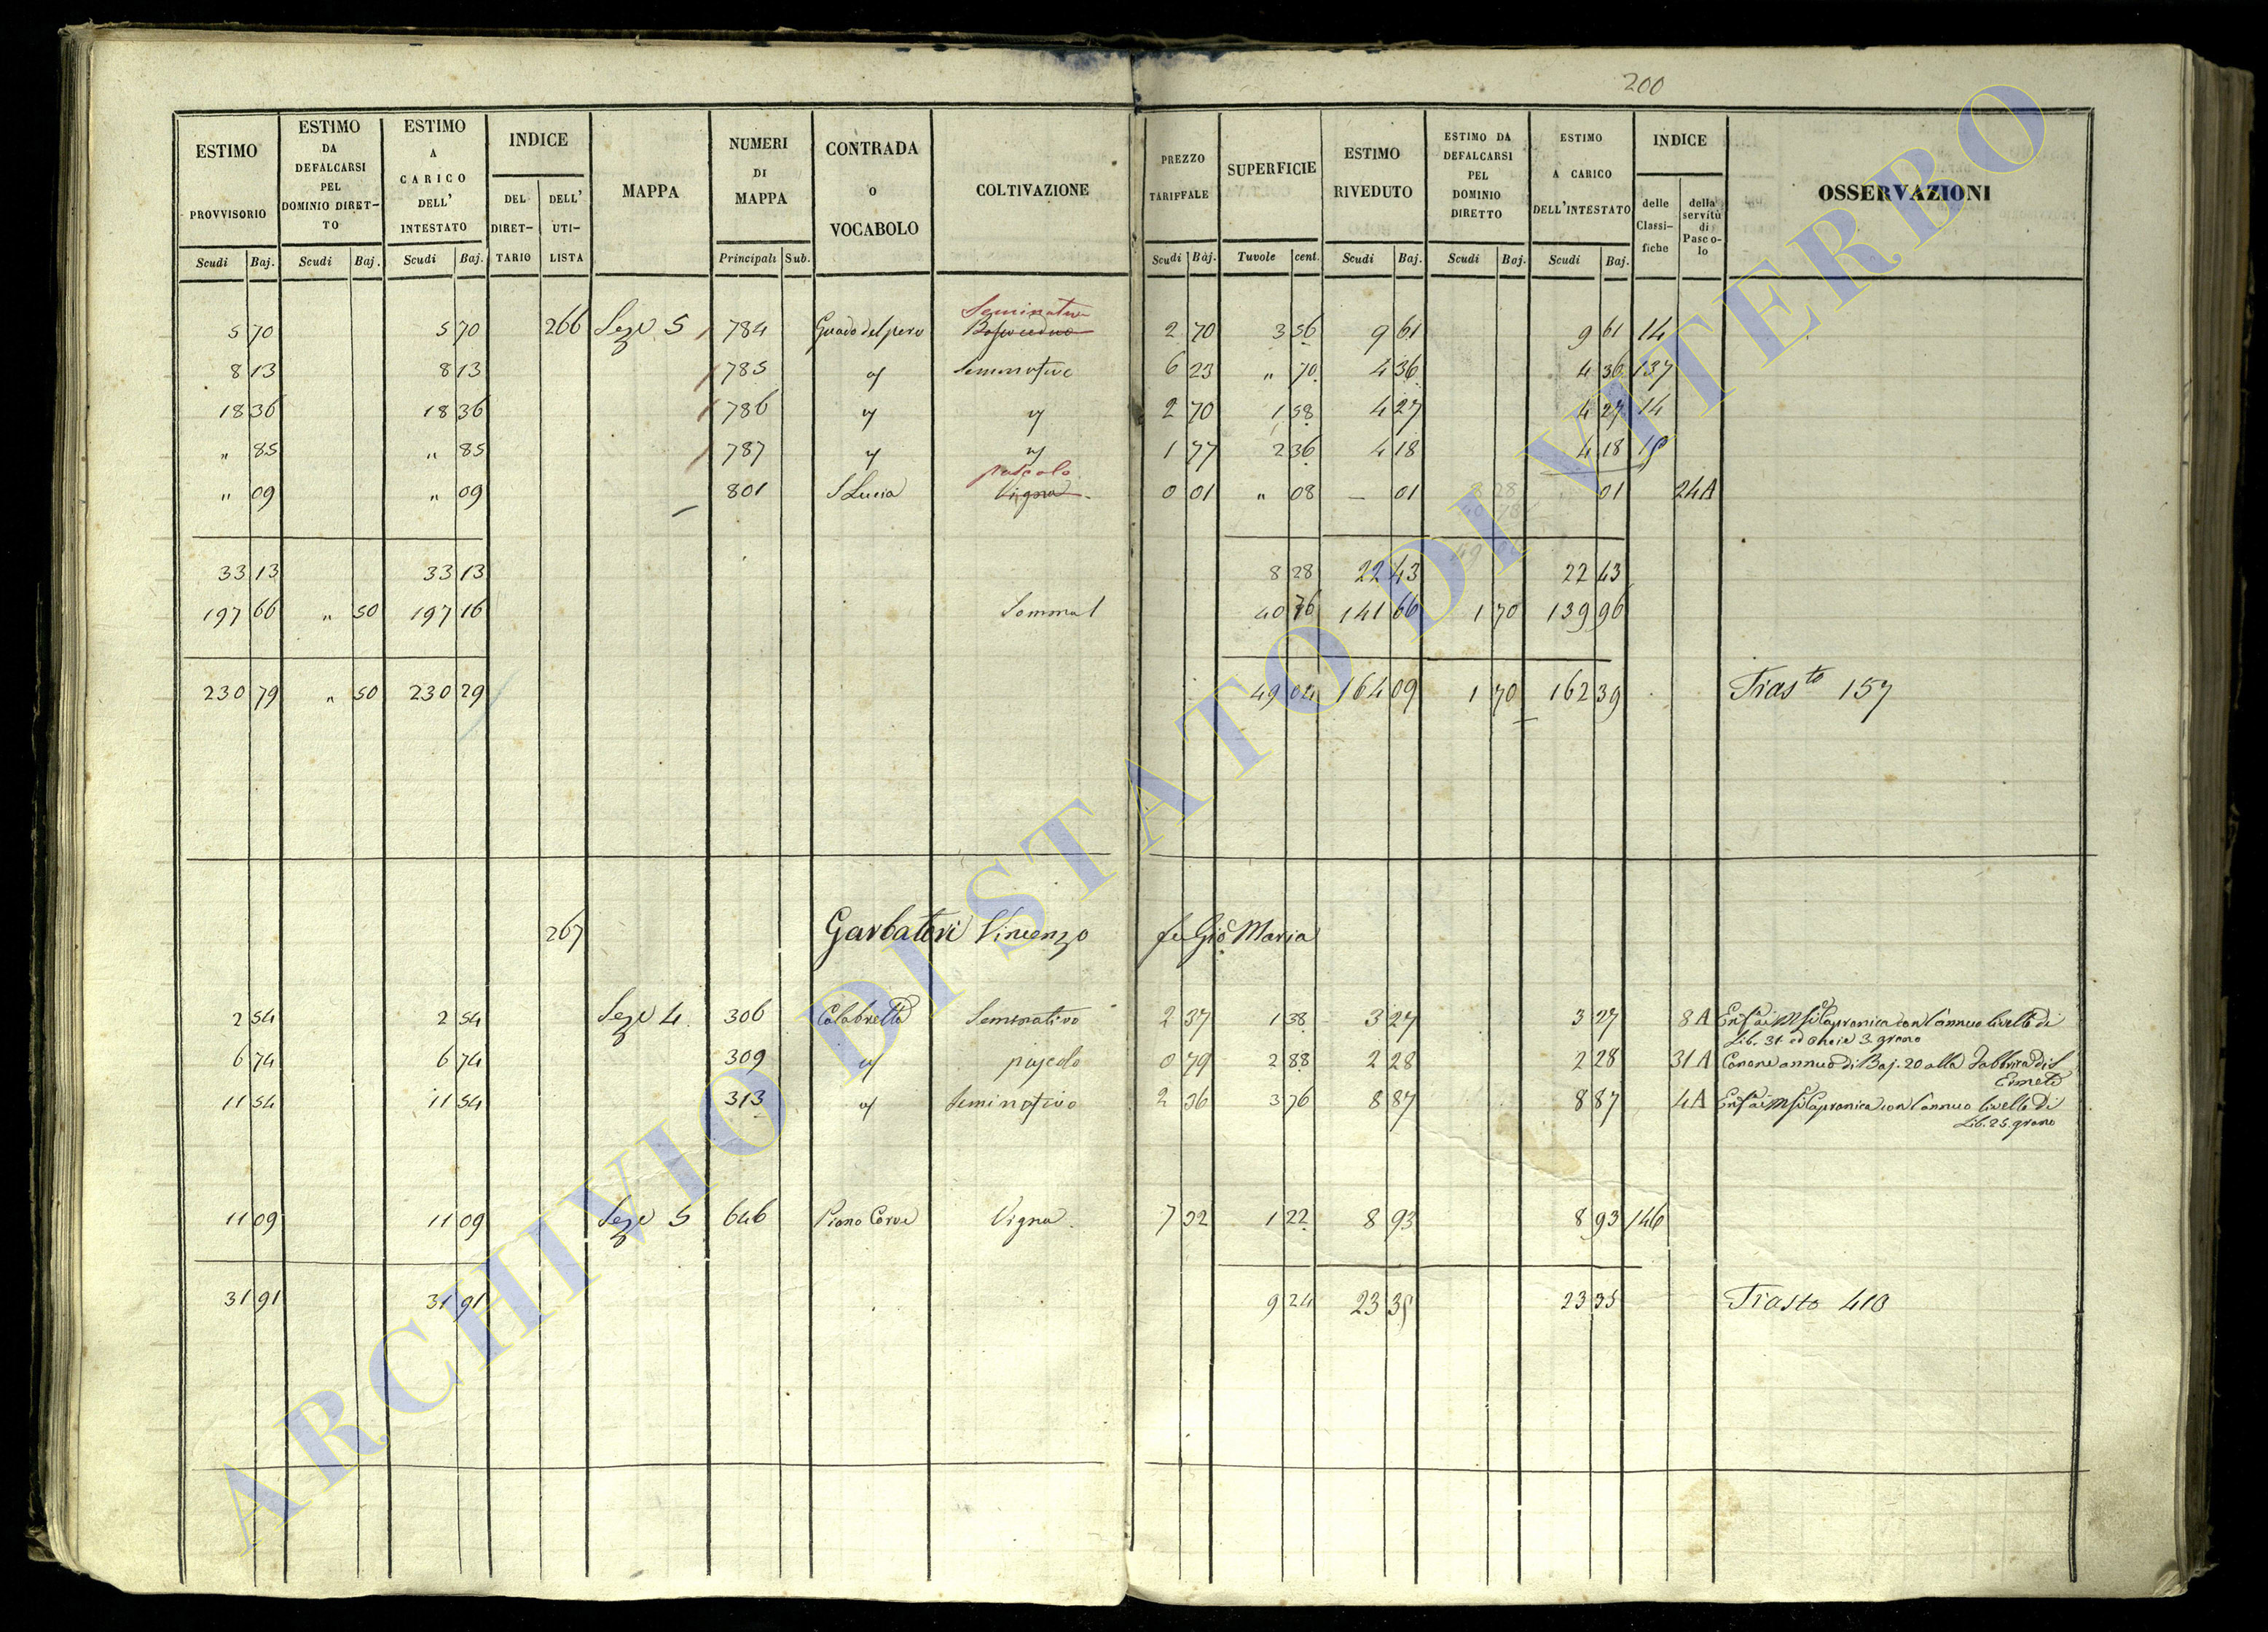 200
ESTIMO PROVVISORIO | ESTIMO DA DEFALCARSI PEL DOMINIO DIRET-TO | ESTIMO A CARICO DELL' INTESTATO | INDICE DEL DIRET-TARIO | DELL' UTI-LISTA | MAPPA | NUMERI DI MAPPA | CONTRADA O VOCABOLO | COLTIVAZIONE | PREZZO TARIFFALE | SUPERFICIE | ESTIMO RIVEDUTO | ESTIMO DA DEFALCARSI PEL DOMINIO DIRETTO | ESTIMO A CARICO DELL'INTESTATO | INDICE delle Classi-fiche | della servitù di Pasco-lo | OSSERVAZIONI
Scudi Baj. | Scudi Baj. | Scudi Baj. | Principali Sub. | Scudi Baj. | Tuvole cent. | Scudi Baj. | Scudi Baj. | Scudi Baj.
Seminativo
5 70 5 70 266 Seze 5 784 Guado del pero 2 70 3 56 9 61 9 61 14
8 13 8 13 785 " Seminativo 6 23 " 70 4 36 4 36 137
18 36 18 36 786 " " 2 70 1 58 4 27 4 27 14
" 85 " 85 787 " " 1 77 2 36 4 18 4 18 15
pascolo
" 09 " 09 801 S Lucia Vigna 0 01 " 08 — 01 01 24A
33 13 33 13 8 28 22 43 22 43
197 66 " 50 197 16 Somma 1 40 76 141 66 1 70 139 96
230 79 " 50 230 29 49 04 164 09 1 70 162 39 Trasto 157
267 Garbatori Vincenzo fu Gio Maria
2 54 2 54 Seze 4 306 Calabretta Seminativo 2 37 1 38 3 27 3 27 8 A Capronica con l'annuo livello di
Lib. 31 3 grano
6 74 6 74 309 " pascolo 0 79 2 88 2 28 2 28 31 A Canone annuo di Baj. 20 alla Fabbrica di S
Ermete
11 54 11 54 313 " Seminativo 2 36 3 76 8 87 8 87 4A Capronica con l'annuo livello di
Lib. 25. grano
11 09 11 09 Seze 5 646 Piano Vigna 7 32 1 22 8 93 8 93 146
31 91 31 91 9 24 23 35 23 35 Trasto 410
ARCHIVIO DI STATO DI VITERBO